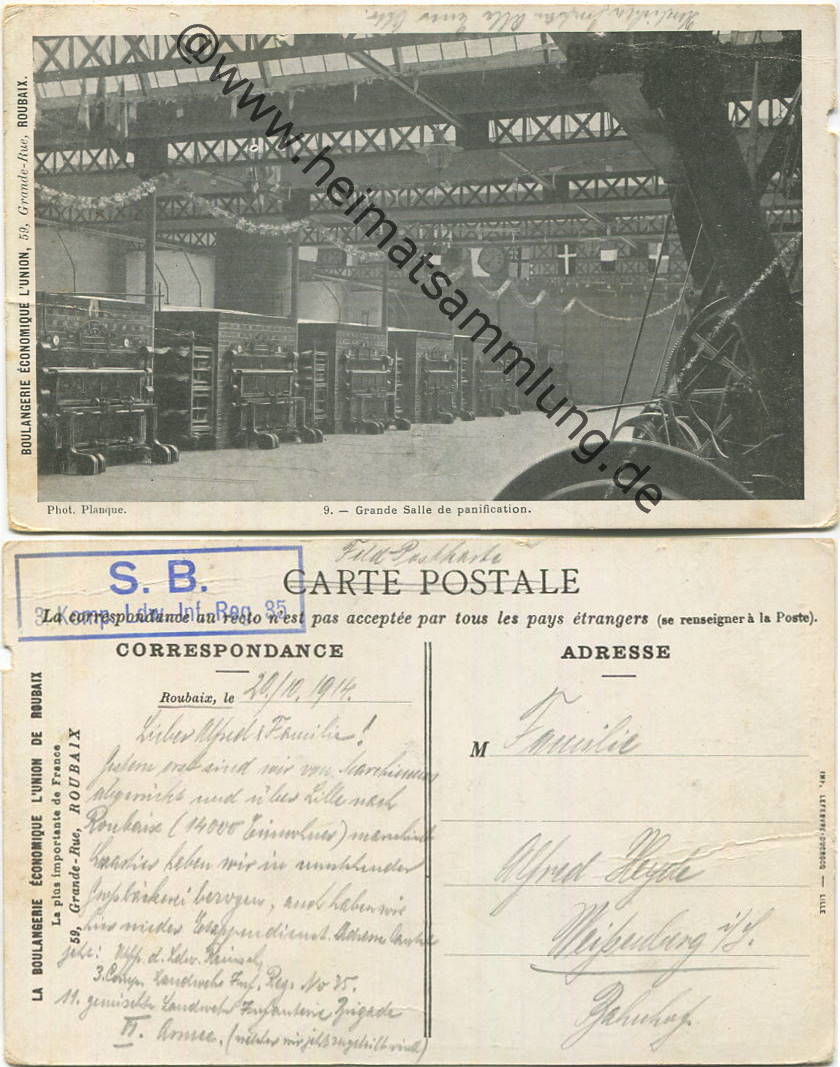 @www.heimatsammlung.de
BOULANGERIE ÉCONOMIQUE L'UNION, 59, Grande-Rue, ROUBAIX.
Phot. Planque.
9. — Grande Salle de panification.
Feld Postkarte
S. B.
3. Komp. Ldw. Inf. Reg. 35
CARTE POSTALE
La correspondance au recto n'est pas acceptée par tous les pays étrangers (se renseigner à la Poste).
CORRESPONDANCE
ADRESSE
LA BOULANGERIE ÉCONOMIQUE L'UNION DE ROUBAIX
La plus importante de France
59, Grande-Rue, ROUBAIX
Roubaix, le 20/10. 1914.
Lieber Alfred & Familie!
Gestern erst sind wir von
abgerückt und über Lille nach
Roubaix (14000 Einwohner)
Quartier haben wir in
Großbäckerei bezogen, auch haben wir
hier wieder Etappendienst. Adresse lautet
jetzt: d. Ldw.
3. Comp. Landwehr Inf. Reg. No 35.
11. gemischte Landwehr Infanterie Brigade
VI. Armee. (welcher wir jetzt zugeteilt sind)
M Familie
Alfred Heyde
Weißenberg i/S.
Bahnhof.
IMP. LEFEBVRE-DUCROCQ — LILLE